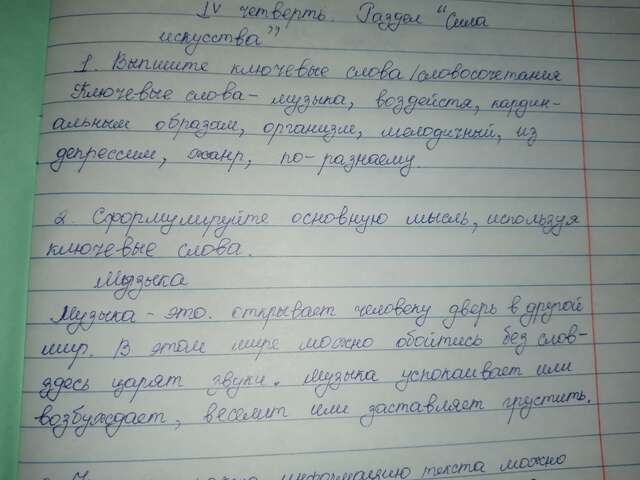 IV четверть. Раздел "Сила
искусства"
1. Выпишите ключевые слова/словосочетания
Ключевые слова - музыка, воздейстя, кардин-
альным образом, организм, мелодичный, из
депрессии, жанр, по-разнаему.
2. Сформулируйте основную мысль, используя
ключевые слова.
Музыка
Музыка - это. открывает человеку дверь в другой
мир. В этом мире можно обойтись без слов-
здесь царят звуки. Музыка успокаивает или
возбуждает, веселит или заставляет грустить.
информацию текста можно